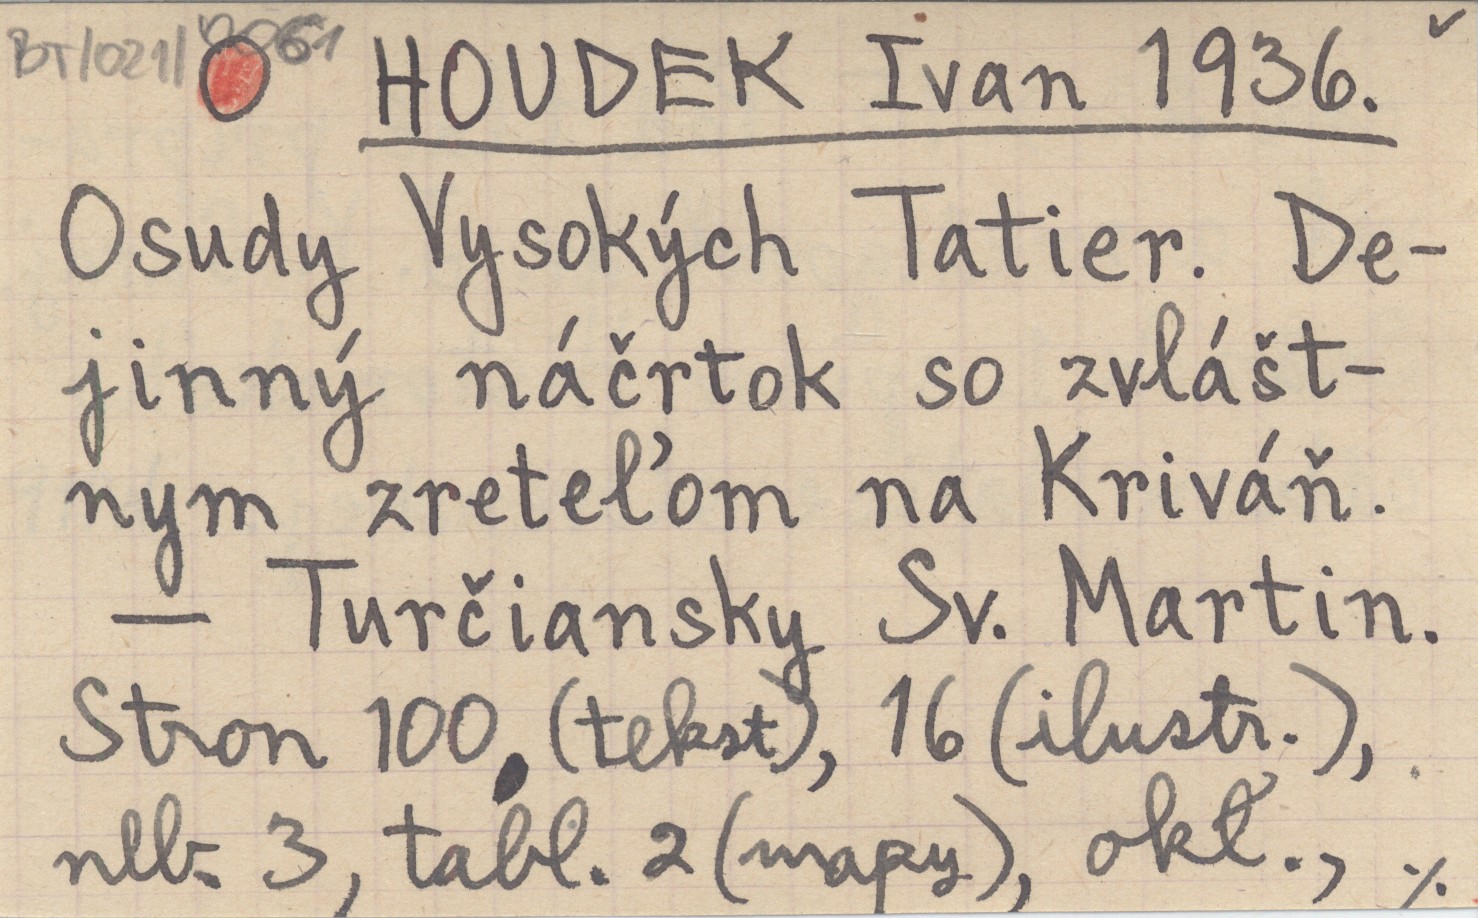 BT/021/
HOUDEK Ivan 1936.
Osudy Vysokých Tatier. De-
jinný náčrtok so zvlášt-
nym zreteľom na Kriváň.
— Turčiansky Sv. Martin.
Stron 100, (tekst), 16 (ilustr.),
nlb. 3, tabl. 2 (mapy), okł., ./.